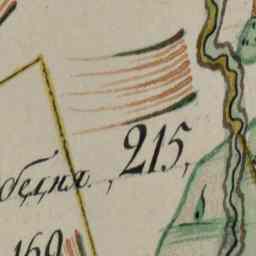 бедня. , 215,
160